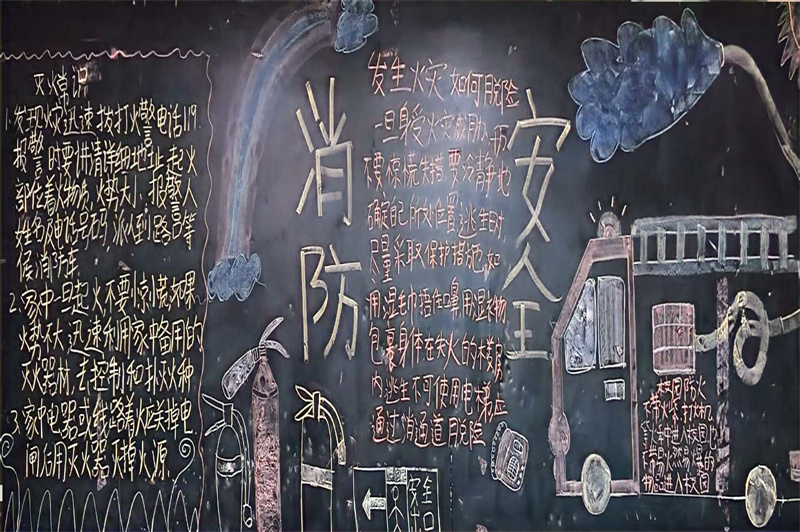 灭火常识
1.发现火灾迅速拨打火警电话119
报警时要讲清详细地址 起火
部位着火物质、火势大小、报警人
姓名及电话号码 派人到路口等
候消防车
2.家中一旦起火不要惊慌如果
火势不大 迅速利用家中备用的
灭火器材 去控制和扑灭火种
3.家中电器或线路着火应关掉电
闸后用灭火器灭掉火源
消防
发生火灾 如何脱险
一旦身受火灾威胁
不要惊慌失措 要冷静地
确定自己所处位置 逃生时
尽量采取保护措施,如
用湿毛巾捂住口鼻 用湿衣物
包裹身体 在失火的
内逃生不可使用电梯应
通过消通道脱险
安全
校园防火
不带火 打火机
进入校园
不带易燃易爆的
物品进入校园
安全
口